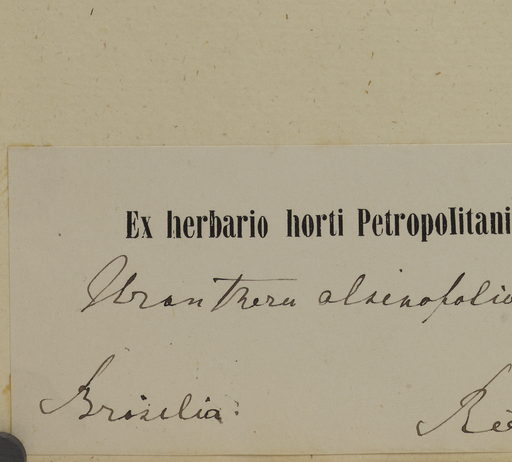 Ex herbario horti Petropolitani
Uranthera alsinefolia
Brasilia. Rie